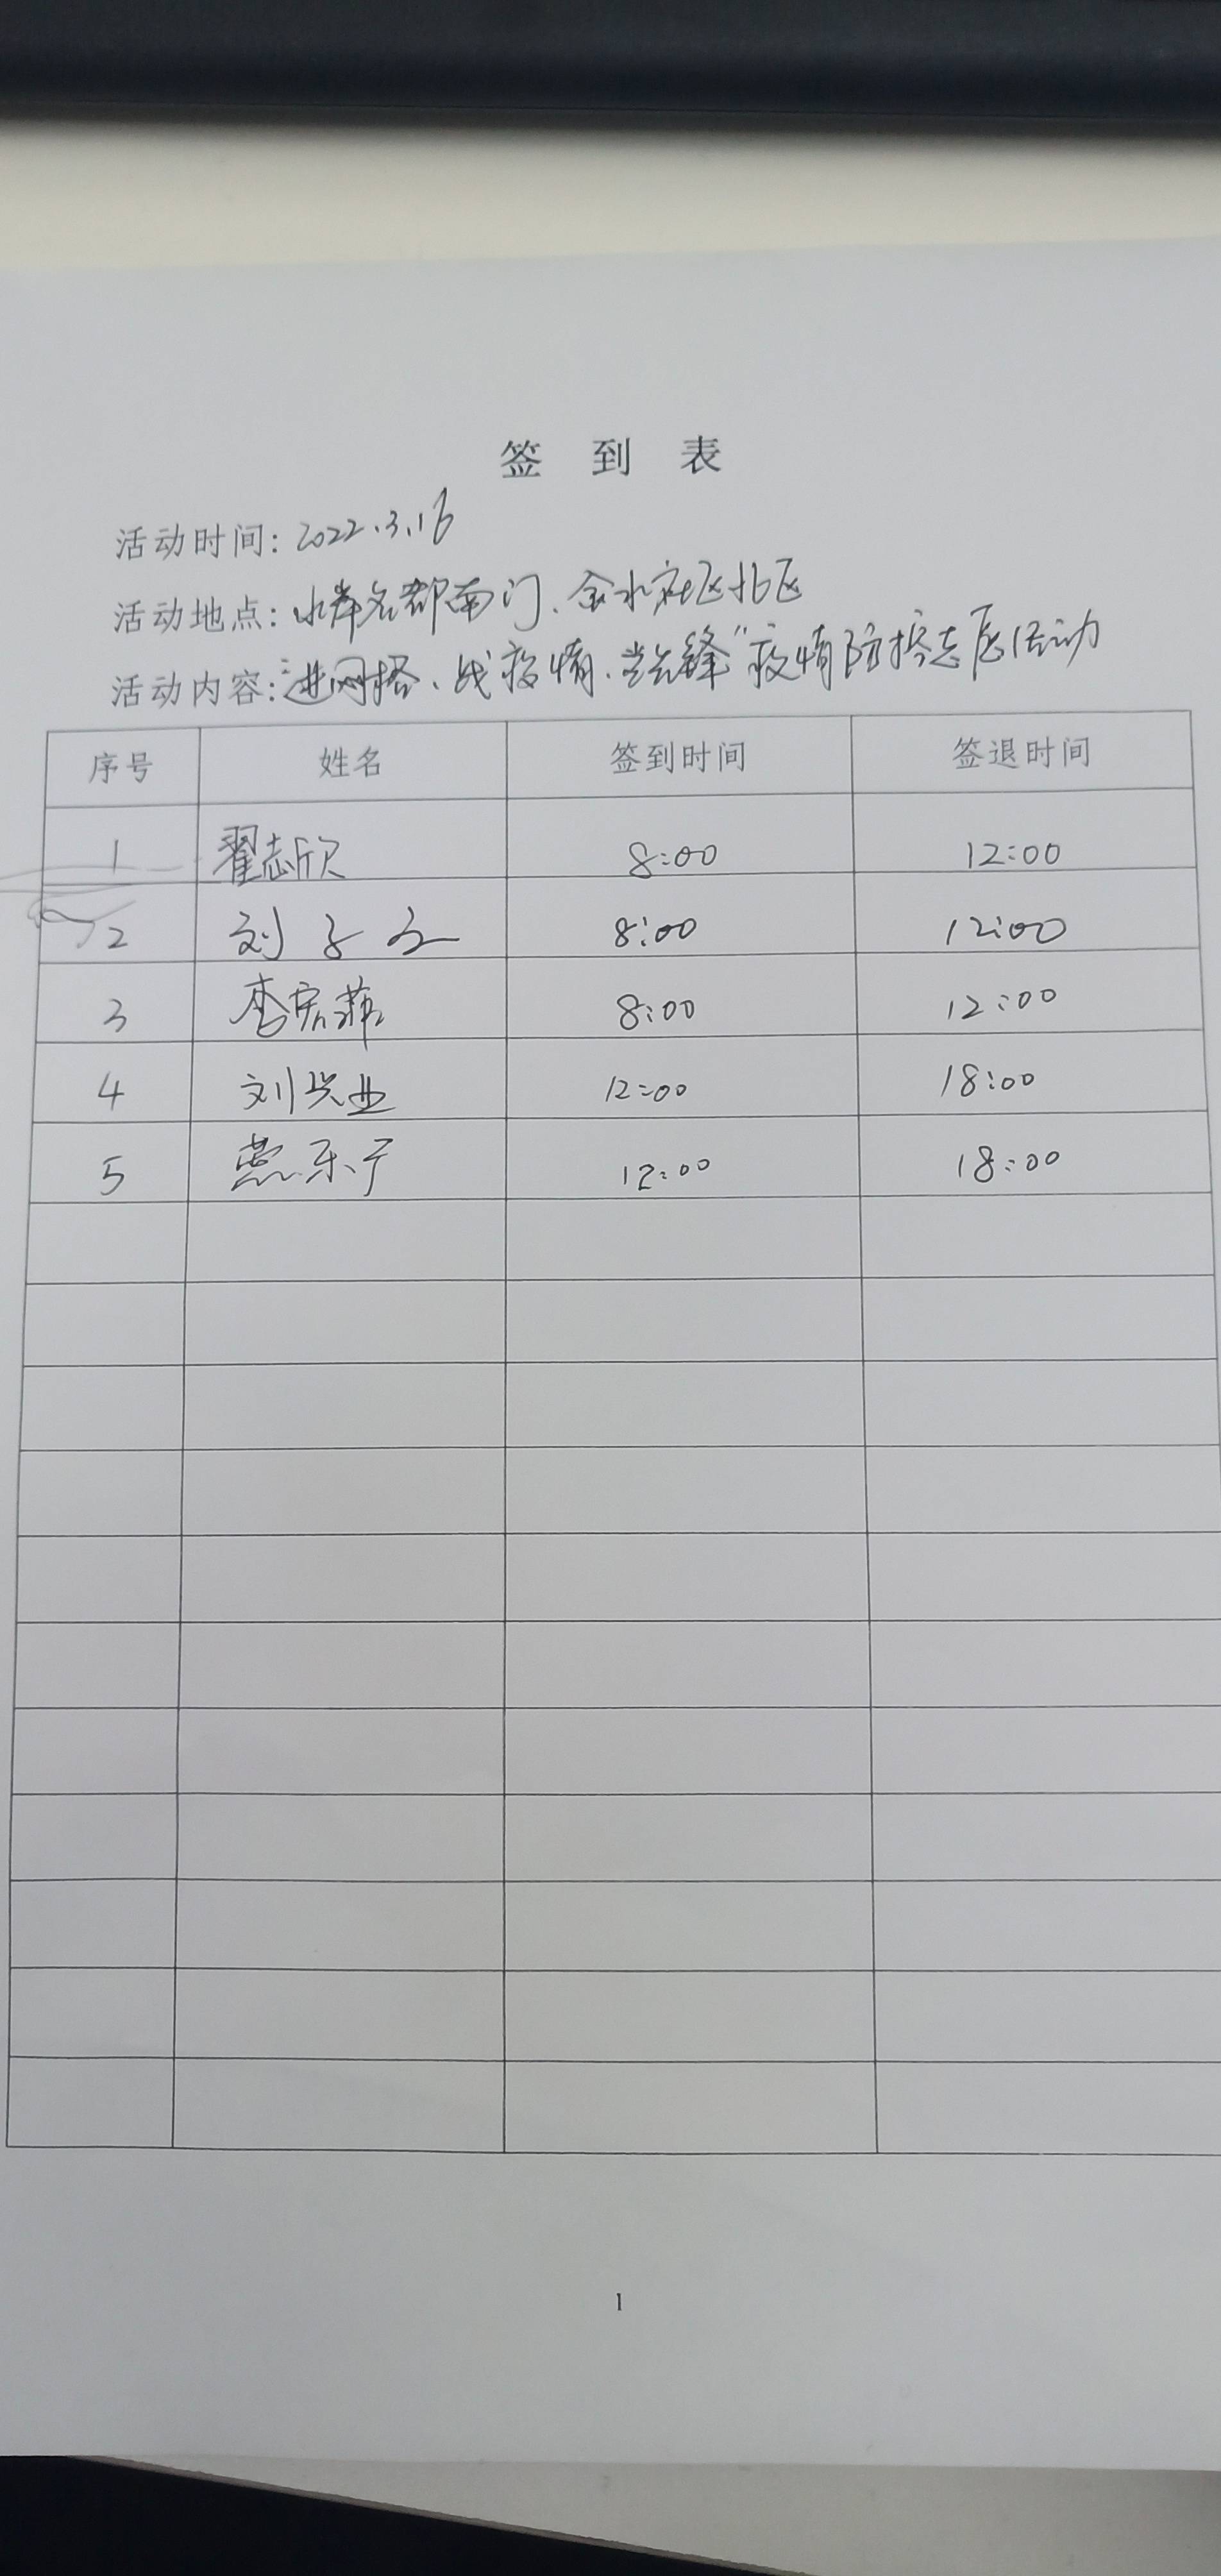 签 到 表
活动时间: 2022.3.16
活动地点: 水岸名都南门、金水社区北区
活动内容: "进网格、战疫情、当先锋"疫情防控志愿活动
序号 姓名 签到时间 签退时间
1 翟志欣 8:00 12:00
2 刘子 8:00 12:00
3 李宏菲 8:00 12:00
4 刘兴业 12:00 18:00
5 燕乐宁 12:00 18:00
1